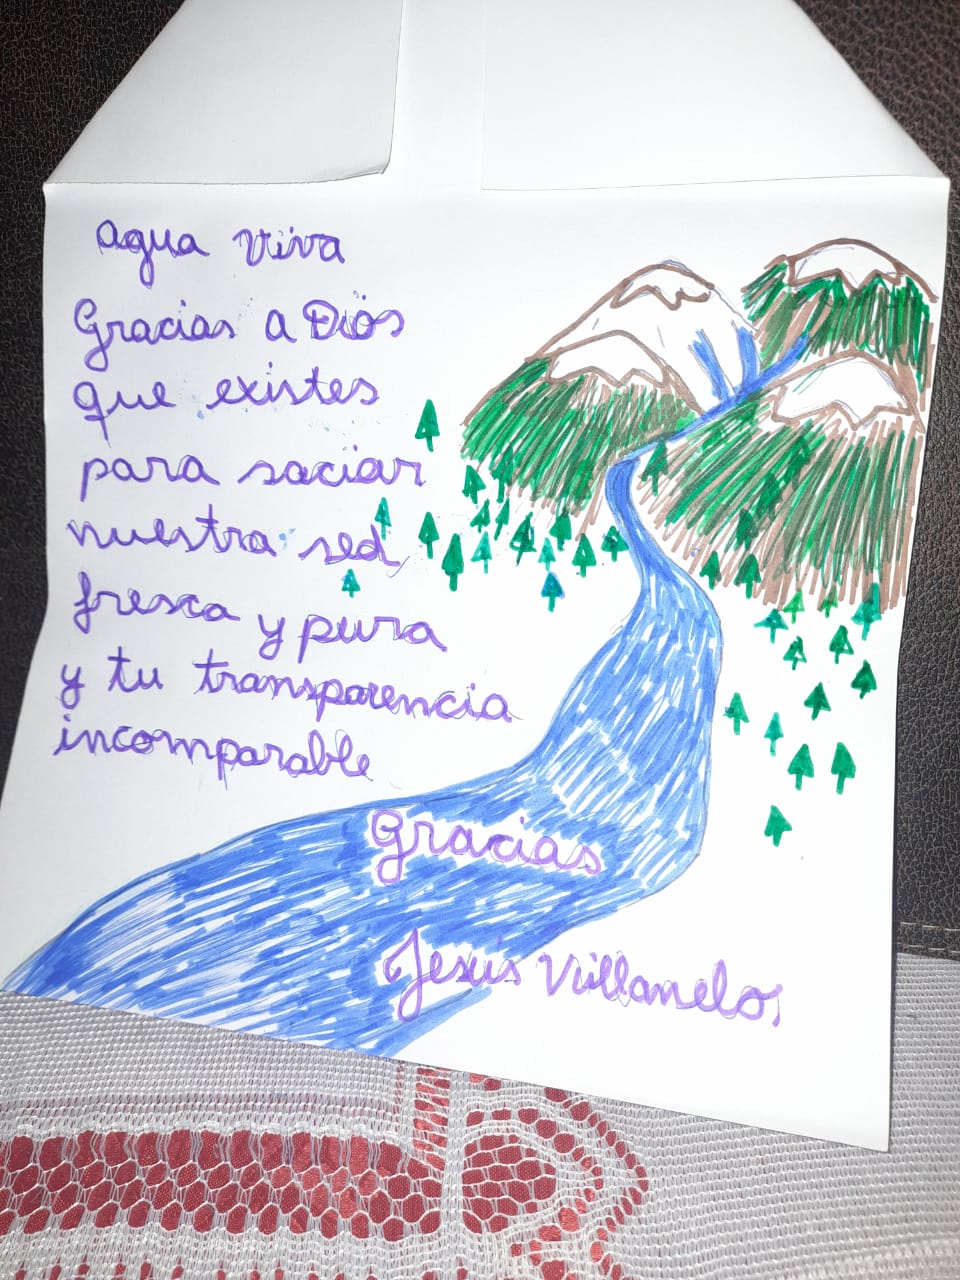 agua viva
Gracias a Dios
que existes
para saciar
nuestra sed,
fresca y pura
y tu transparencia
incomparable
Gracias
Jesús Villanelo,